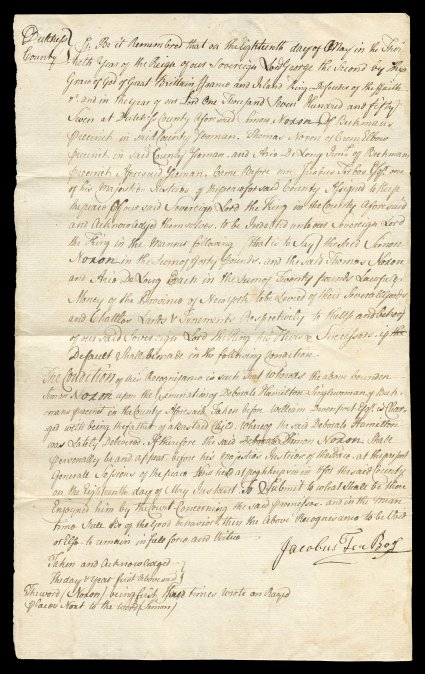 Dutchess
County
Be it Remembered that on the Eighteenth day of May in the
Year of the Reign of our Sovereign Lord George the Second by the
Grace of God of Great Brittain France and Ireland King Defender of the Faith
&c and in the year of our Lord One Thousand Seven Hundred and fifty
Seven at Dutchess County aforesaid Simon Noxon of Beekmans
Precinct in said County Yeoman, Thomas Noxon of
Precinct in said County Yeoman, and De Long of Beekmans
Precinct aforesaid Yeoman, Came Before me Jacobus Ter Bos Esqr. one
of his Majesties Justices of the peace for said County Assigned to keep
the peace Of our said Sovereign Lord the King in the County Aforesaid
and Acknowledged themselves to be Indebted unto our Sovereign Lord
the King in the Manner following That is to Say the said Simon
Noxon in the Sum of forty Pounds and the said Thomas Noxon
and De Long Each in the Sum of Twenty pounds Lawfull
Money of the Province of New York to be Levied of their Several Goods
and Chattles Lands & Tenements Respectively to the use
of our said Sovereign Lord the King his Heirs & Successors, if
Default Shall be made in the following Condition
The Condition of this Recognisance is such that whereas the above bounden
Simon Noxon upon the Examination of Deborah Hamilton Singlewoman of Beek-
mans precinct in the County Aforesaid Taken before William Davenport Esqr. is Char-
ged with being the father of a Bastard Child Whereof the said Deborah Hamilton
was Lately Delivered, If therefore the said Deborah Simon Noxon, Shall
personally be and appear before his Majesties Justices of the peace at the present
General Sessions of the peace Now held at poghkeepsie in & for the said County
on the Eighteenth day of May Instant To Submit to what Shall be then
Enjoyned him by the Court Concerning the said premises and in the mean
time Shall Be of the good behavior then the Above Recognisance to be Void
or Else to remain in full force and Virtue
Taken and Acknowledged
the day & year first Above said
Jacobus Ter Bos
The word (Noxon) being first times wrote on Razed
places Next to the word (Simon)